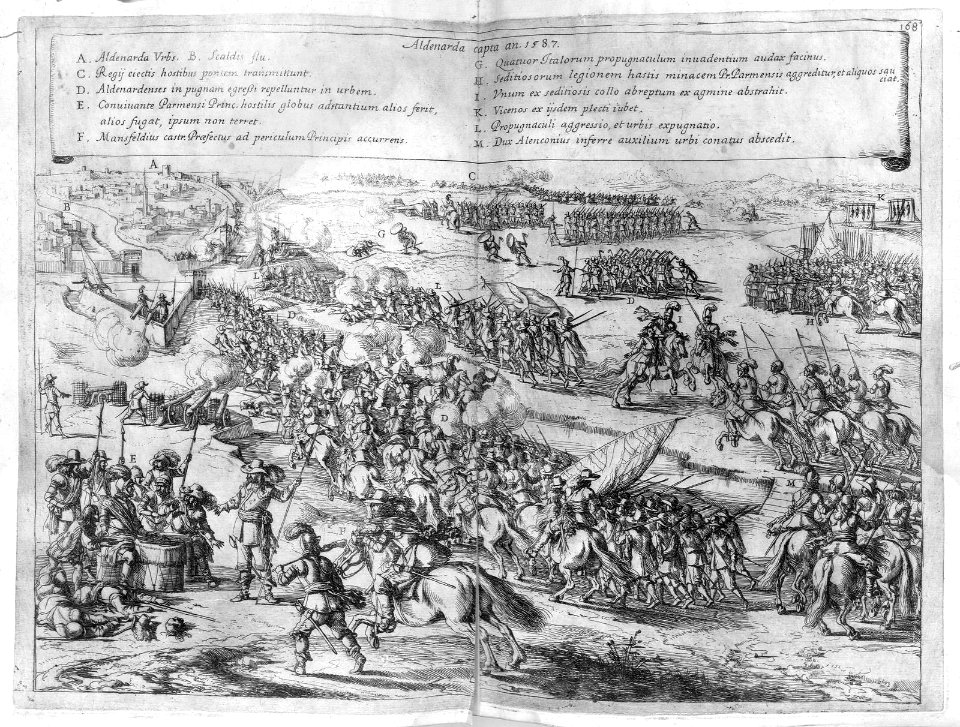 168
Aldenarda capta an. 1587.
A. Aldenarda Vrbs. B. Scaldis flu.
C. Regij eiectis hostibus pontem transmittunt.
D. Aldenardenses in pugnam egreßi repelluntur in urbem.
E. Conuiuante Parmensi Princ. hostilis globus adstantium alios ferit,
alios fugat, ipsum non terret.
F. Mansfeldius castr. Præfectus ad periculum Principis accurrens.
G. Quatuor Italorum propugnaculum inuadentium audax facinus.
H. Seditiosorum legionem hastis minacem Pr. Parmensis aggreditur, et aliquos sau
ciat.
I. Vnum ex seditiosis collo abreptum ex agmine abstrahit.
K. Vicenos ex ijsdem plecti iubet.
L. Propugnaculi aggressio, et urbis expugnatio.
M. Dux Alenconius inferre auxilium urbi conatus abscedit.
A
B
C
K
G
L
L
D
D
I
H
D
E
M
F